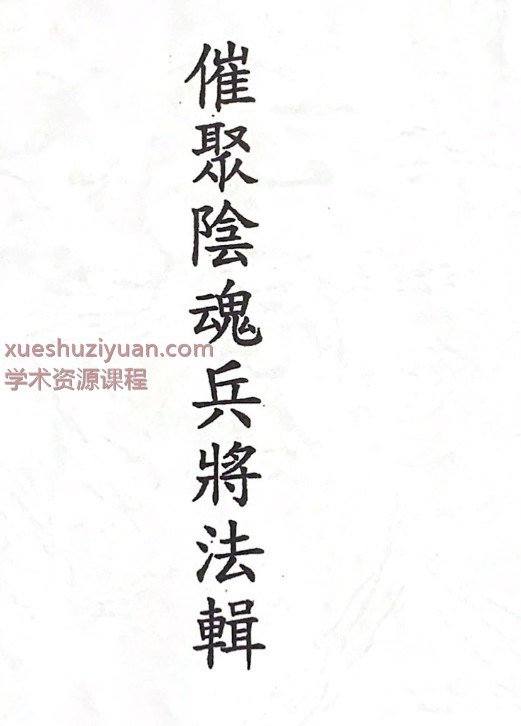 催聚陰魂兵將法輯
xueshuziyuan.com
学术资源课程